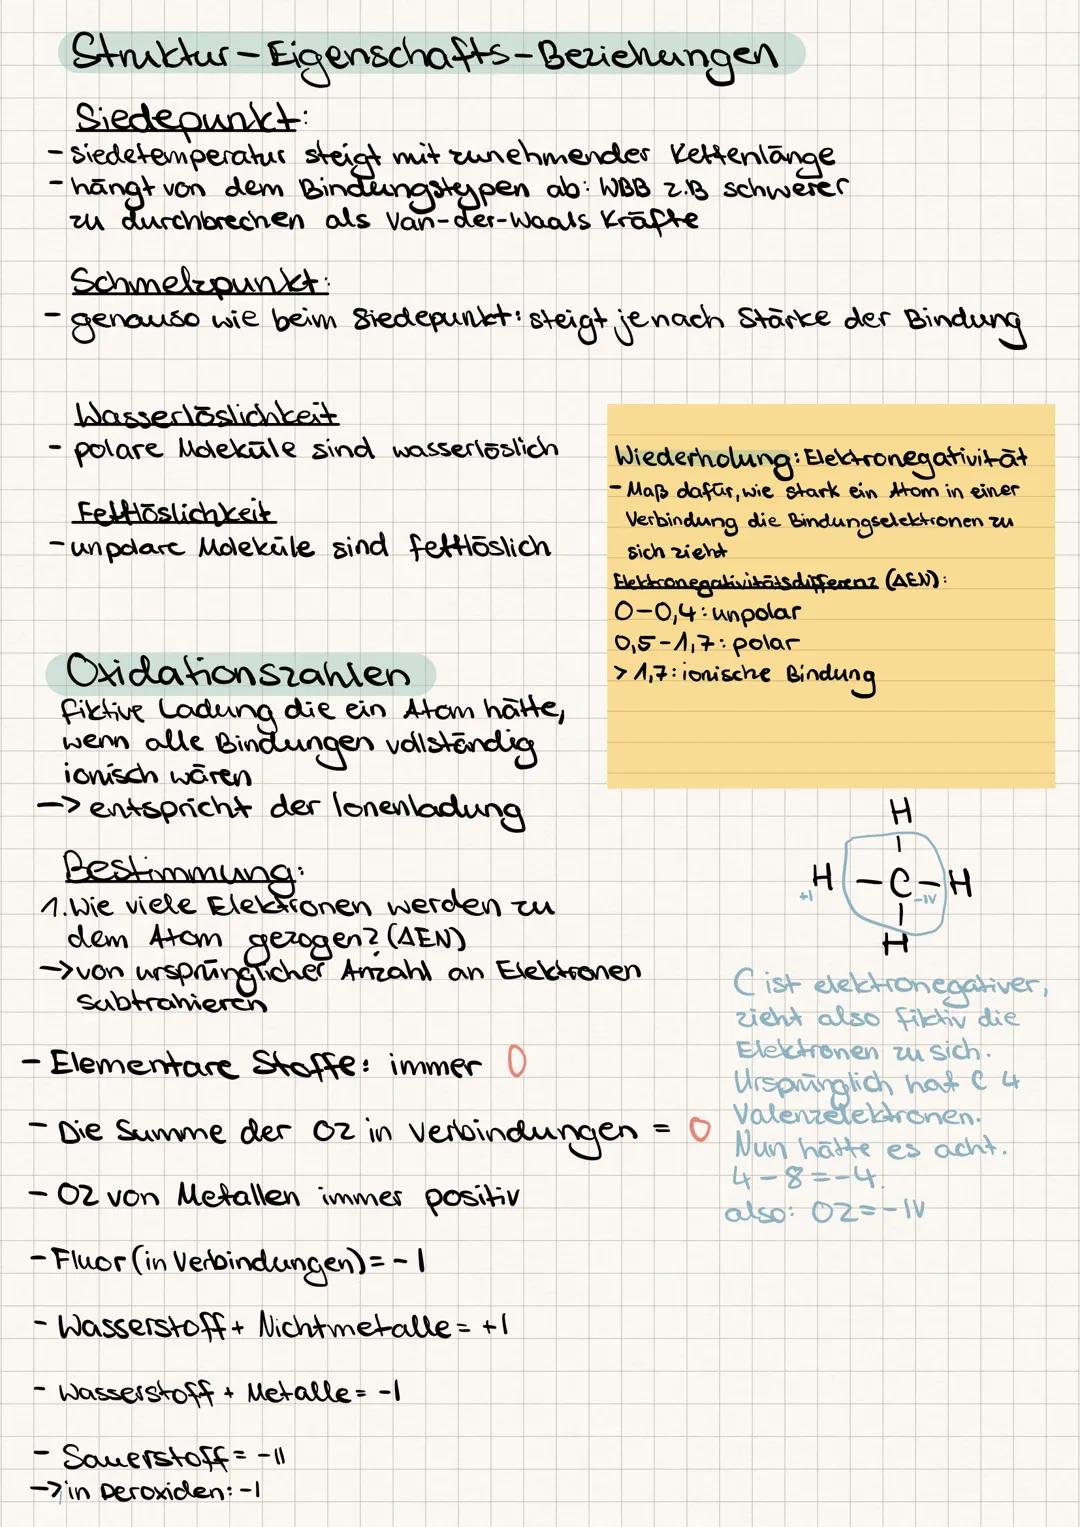 Struktur-Eigenschafts-Beziehungen
Siedepunkt:
- Siedetemperatur steigt mit zunehmender Kettenlänge
- hängt von dem Bindungstypen ab: WBB z.B schwerer
zu durchbrechen als Van-der-Waals Kräfte
Schmelzpunkt:
- genauso wie beim Siedepunkt: steigt je nach Stärke der Bindung
Wasserlöslichkeit
- polare Moleküle sind wasserlöslich
Fettlöslichkeit
- unpolare Moleküle sind fettlöslich
Wiederholung: Elektronegativität
- Maß dafür, wie stark ein Atom in einer
Verbindung die Bindungselektronen zu
sich zieht
Elektronegativitätsdifferenz (ΔEN):
0-0,4: unpolar
0,5-1,7: polar
> 1,7: ionische Bindung
Oxidationszahlen
fiktive Ladung die ein Atom hätte,
wenn alle Bindungen vollständig
ionisch wären
-> entspricht der Ionenladung
Bestimmung:
1. Wie viele Elektronen werden zu
dem Atom gezogen? (ΔEN)
-> von ursprünglicher Anzahl an Elektronen
subtrahieren
- Elementare Stoffe: immer 0
- Die Summe der OZ in Verbindungen = 0
- OZ von Metallen immer positiv
- Fluor (in Verbindungen) = -1
- Wasserstoff + Nichtmetalle = +1
- Wasserstoff + Metalle = -1
- Sauerstoff = -II
-> in Peroxiden: -1
H
H - C - H
+I -IV
H
C ist elektronegativer,
zieht also fiktiv die
Elektronen zu sich.
Ursprünglich hat C 4
Valenzelektronen.
Nun hätte es acht.
4-8=-4.
also: OZ=-IV